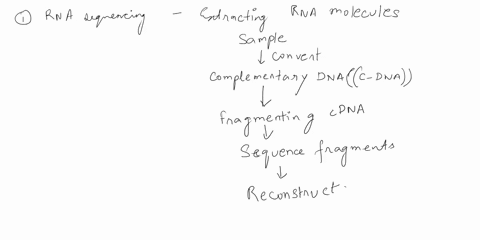 ① RNA sequencing - Extracting RNA molecules
Sample
↓ convert
Complementary DNA((C-DNA))
↓
Fragmenting cDNA
↓
Sequence fragments
↓
Reconstruct.